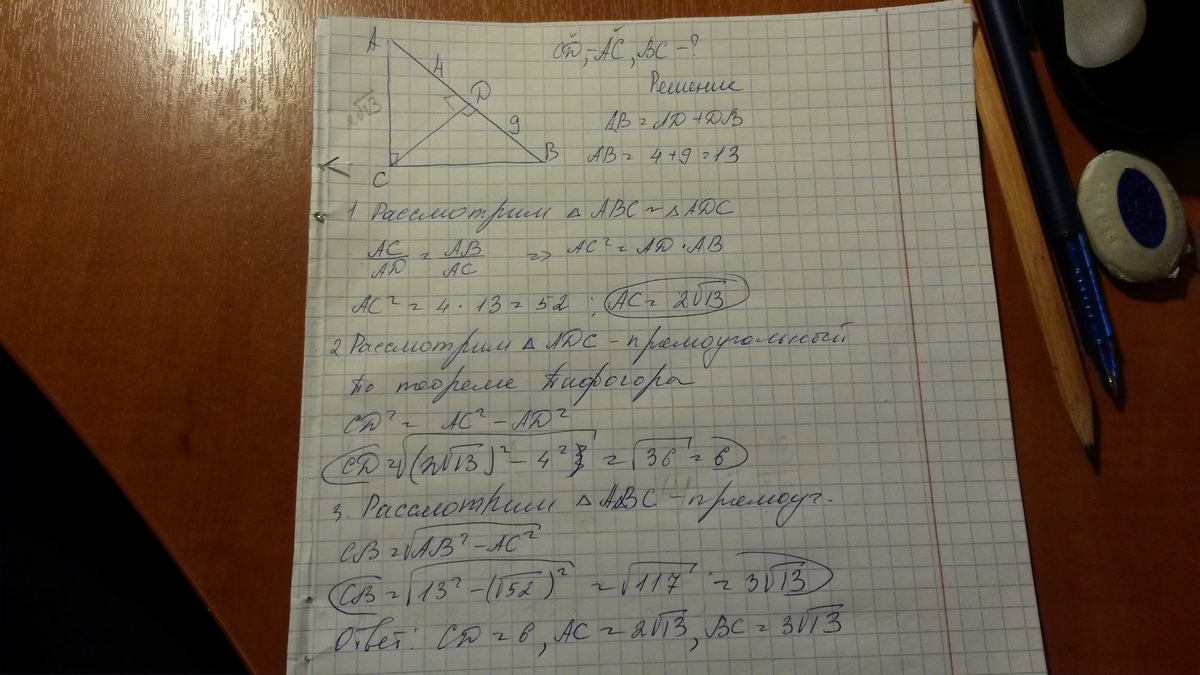 A
4
CD, AC, BC - ?
D
Решение
2√13
9
AB = AD + DB
B
AB = 4 + 9 = 13
C
1. Рассмотрим △ ABC ~ △ ADC
AC/AD = AB/AC => AC² = AD · AB
AC² = 4 · 13 = 52 ; AC = 2√13
2 Рассмотрим △ ADC - прямоугольный
по теореме Пифогора
CD² = AC² - AD²
CD = √(2√13)² - 4² = √36 = 6
3. Рассмотрим △ ABC - прямоуг.
CB = √AB² - AC²
CB = √13² - (√52)² = √117 = 3√13
Ответ: CD = 6, AC = 2√13, BC = 3√13